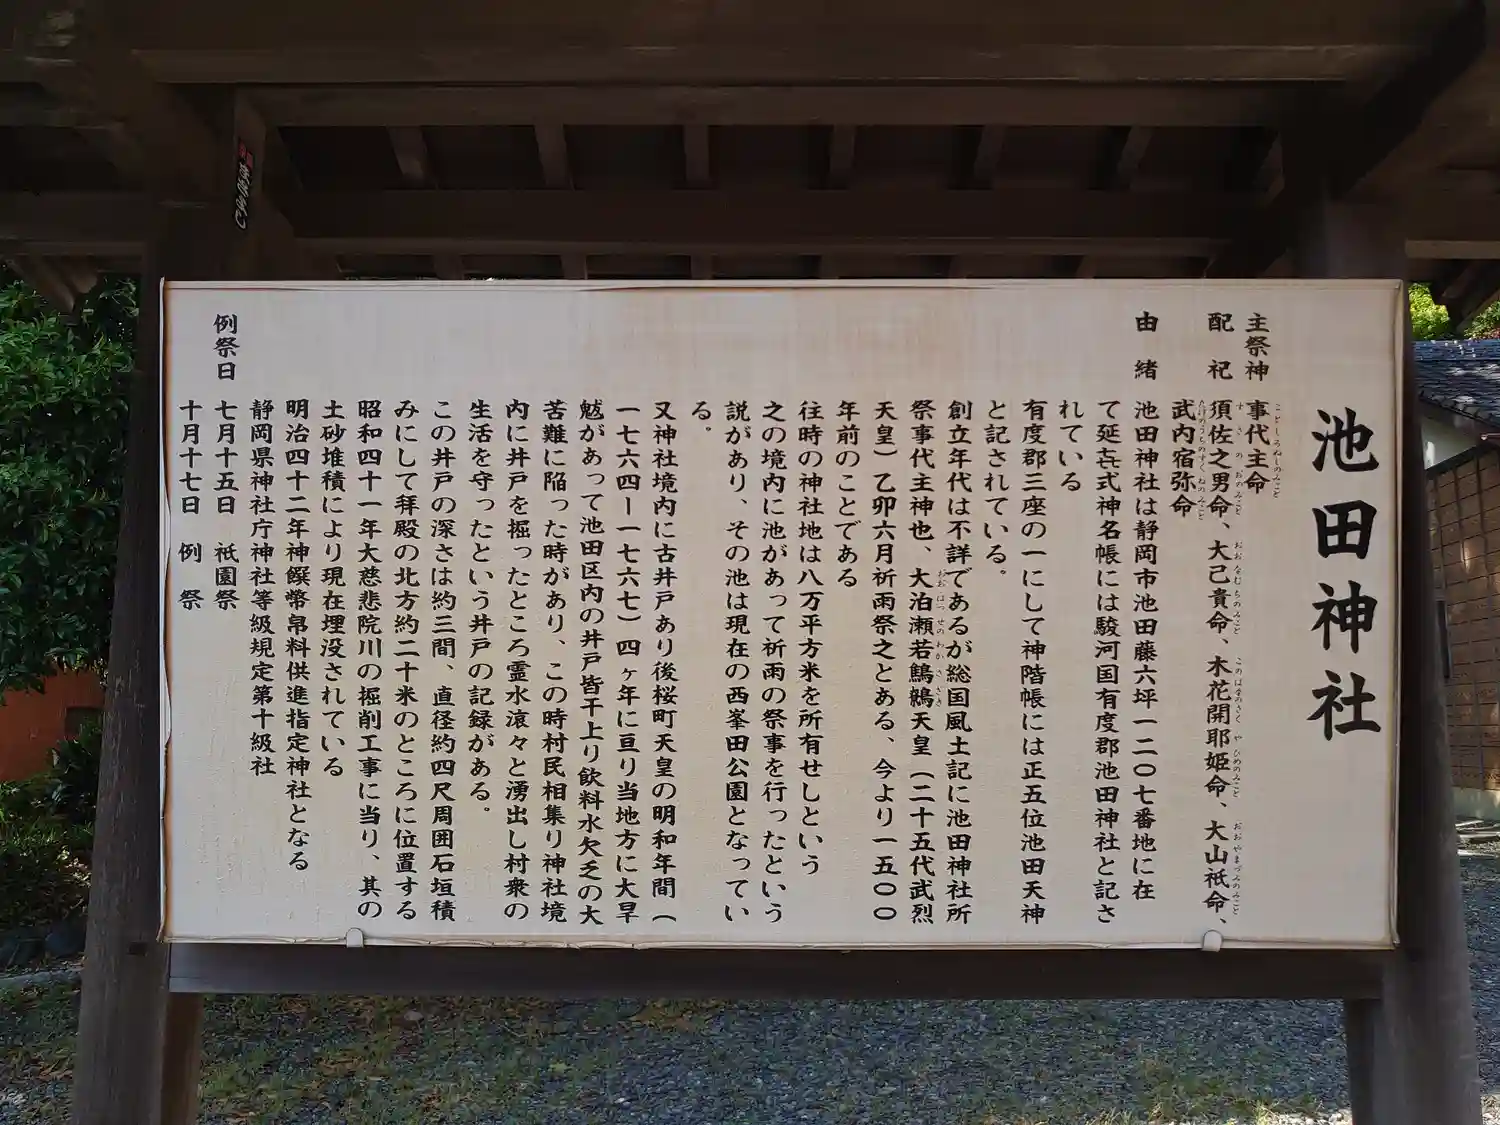 池田神社
主祭神 事代主命
ことしろぬしのみこと
配祀 須佐之男命、大己貴命、木花開耶姫命、大山祇命、
すさのおのみこと おおなむちのみこと このはなのさくやひめのみこと おおやまづみのみこと
武内宿弥命
たけのうちのすくねのみこと
由緒 池田神社は静岡市池田藤六坪一二〇七番地に在
て延㐂式神名帳には駿河国有度郡池田神社と記さ
れている
有度郡三座の一にして神階帳には正五位池田天神
と記されている。
創立年代は不詳であるが総国風土記に池田神社所
祭事代主神也、大泊瀬若鷦鷯天皇（二十五代武烈
おおはつせのわかささぎ
天皇）乙卯六月祈雨祭之とある、今より一五〇〇
年前のことである
往時の神社地は八万平方米を所有せしという
之の境内に池があって祈雨の祭事を行ったという
説があり、その池は現在の西峯田公園となってい
る。
又神社境内に古井戸あり後桜町天皇の明和年間（
一七六四ー一七六七）四ヶ年に亘り当地方に大旱
魃があって池田区内の井戸皆干上り飲料水欠乏の大
苦難に陥った時があり、この時村民相集り神社境
内に井戸を掘ったところ霊水滾々と湧出し村衆の
生活を守ったという井戸の記録がある。
この井戸の深さは約三間、直径約四尺周囲石垣積
みにして拝殿の北方約二十米のところに位置する
昭和四十一年大慈悲院川の掘削工事に当り、其の
土砂堆積により現在埋没されている
明治四十二年神饌幣帛料供進指定神社となる
静岡県神社庁神社等級規定第十級社
例祭日 七月十五日 祇園祭
十月十七日 例祭